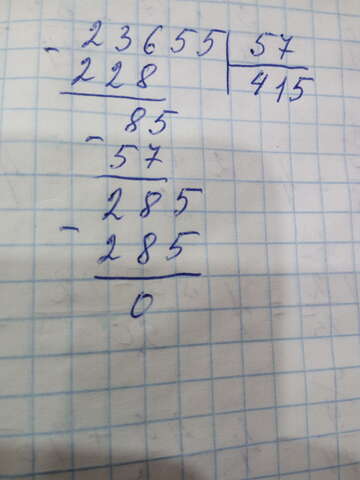 - 23655 | 57
228 | 415
85
- 57
285
- 285
0